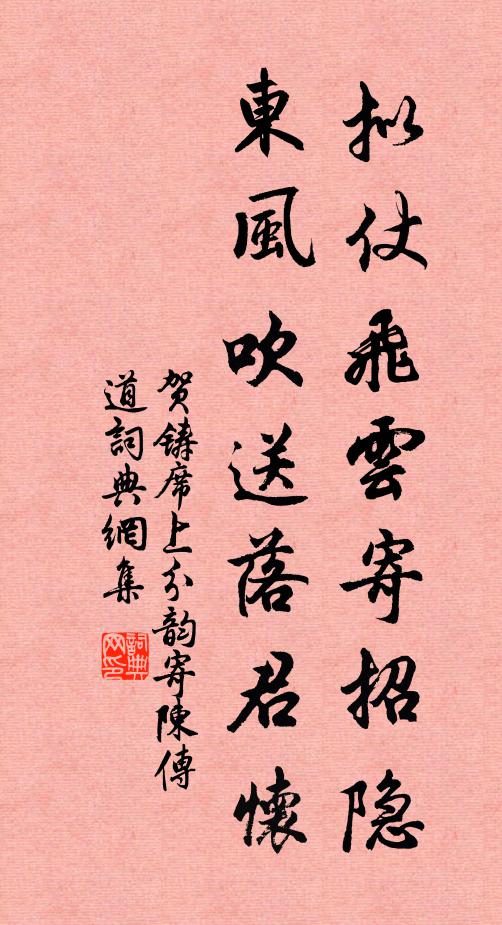 拟仗飛雲寄招隐
東風吹送落君懷
賀鑄席上分韵寄陳傳
道詞典網集
詞典網印